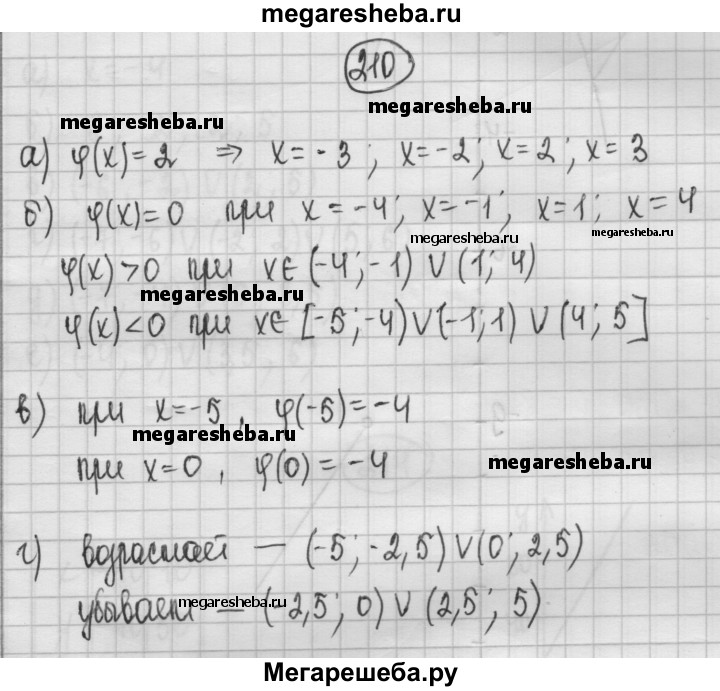 megaresheba.ru
210
megaresheba.ru
megaresheba.ru
а) φ(x)=2 ⇒ x=-3; x=-2; x=2; x=3
б) φ(x)=0 при x=-4; x=-1; x=1; x=4
megaresheba.ru
megaresheba.ru
φ(x)>0 при x∈(-4;-1) ∨ (1; 4)
megaresheba.ru
φ(x)<0 при x∈[-5;-4)∨(-1;1) ∨ (4; 5]
в) при x=-5, φ(-5)=-4
megaresheba.ru
при x=0, φ(0)=-4
megaresheba.ru
г) возрастает — (-5; -2,5) ∨ (0; 2,5)
убывает — (-2,5; 0) ∨ (2,5; 5)
megaresheba.ru
Мегарешеба.ру